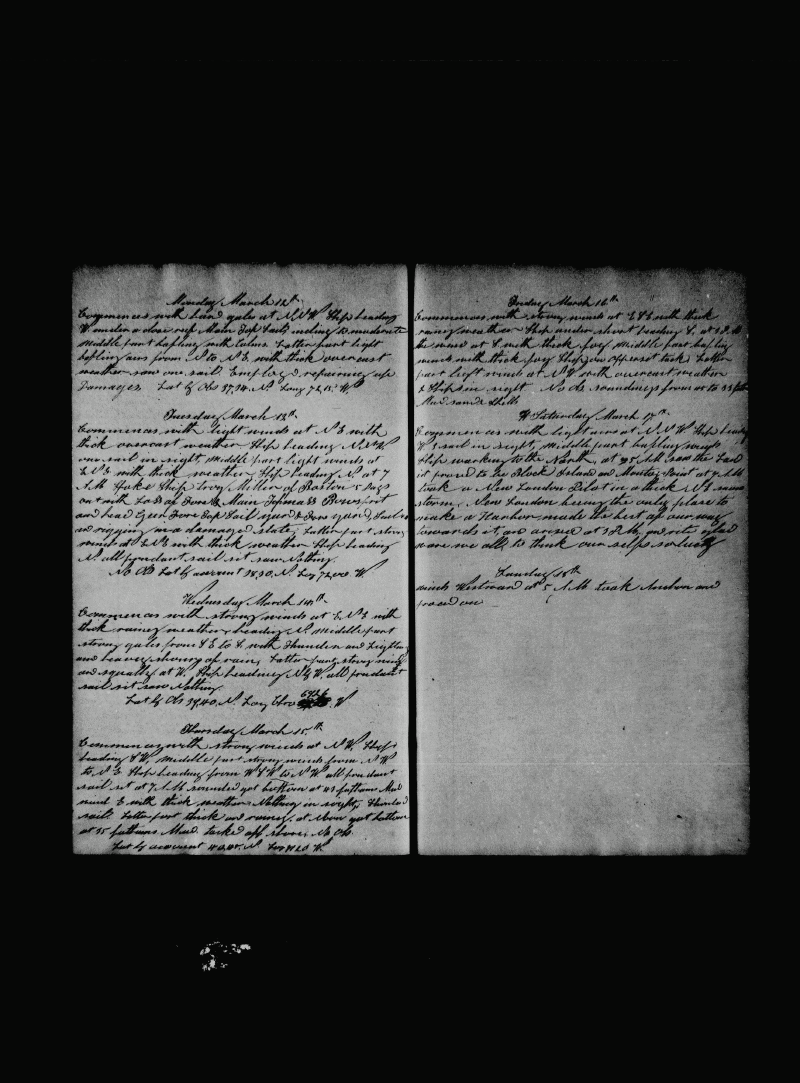 Monday March 12th
Commences with hard gales at N.N.W. Ship heading
W. under a close reef Main Top Sail, moderate
middle part baffling with calms Latter part light
baffling airs from N to N E. with thick overcast
weather saw one sail. Employed repairing up
Damages Lat by Obs 37,34. N. Long 72,15. W.
Tuesday March 13th
Commences with light winds at N E with
thick overcast weather Ship heading N.N.W.
one sail in sight, Middle part light winds at
E N E with thick weather Ship heading N. at 7
A M Spoke Ship Troy Miller of Boston 5 Days
out with Loss of Fore & Main Topmast Bowsprit
and head Gear Fore Top Sail yard & Fore yard,
and rigging in a damaged state, Latter part strong
winds at E N E with thick weather Ship heading
N. all prudent sail sit saw Nothing.
No Obs Lat by account 38,30. N. Long 72,00 W.
Wednesday March 14th
Commences with strong winds at E N E with
thick rainy weather heading N. Middle part
strong gales from S E to S. with Thunder and Lightning
and heavy showers of rain, Latter part strong winds
and squally at W. Ship heading N by W all prudent
sail sit saw Nothing
Lat by Obs 39,40. N. Long W
Thursday March 15th
Commences with strong winds at N W. Ship
heading S W. Middle part strong winds from N W
to N E Ship heading from W S W to N W all prudent
sail sit at 7 A M sounded got bottom at 43 fathom Mud
wind E with thick weather Nothing in sight,
sail. Latter part thick and rainey. at Noon got bottom
at 35 fathoms Mud. Tacked off shore, No Obs
Lat by account N. Long W.
Friday March 16th
Commences with strong winds at E S E with thick
rainy weather Ship under short heading S. at P. M
the wind at S. with thick fog Middle part baffling
winds with thick fog Ship on opposet tack, Latter
part light winds at N W with overcast weather
2 Ships in sight No Obs soundings from to 33
Mud sand & Shells
Saturday March 17th
Commences with light airs at N N W Ship heading
W 1 sail in sight, Middle part baffling winds
Ship working to the North, at A M saw the Land
it proved to be Block Island and Montog Point at 7 A M
took a New London Pilot in a thick N E snow
storm. New London being the only place to
make a Harbor made the best of our way
towards it, and arived at 3 P.M.
ware we all to think our selfs so lucky
Sunday 18th
winds Westward at 5 A.M. took Anchor and
proced on